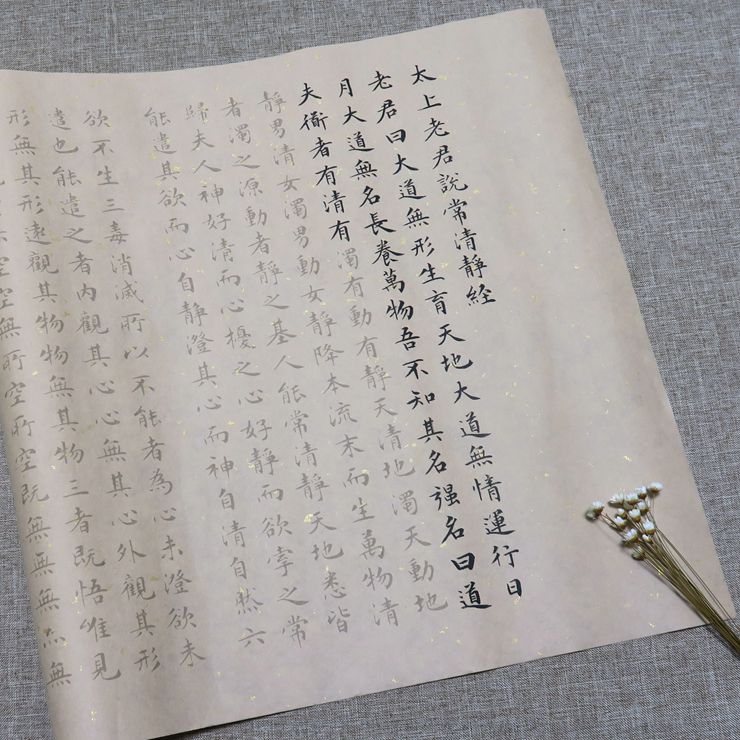 太上老君說常清靜経
老君曰大道無形生育天地大道無情運行日
月大道無名長養萬物吾不知其名强名曰道
夫衜者有清有濁有動有靜天清地濁天動地
靜男清女濁男動女靜降本流末而生萬物清
者濁之源動者靜之基人能常清靜天地悉皆
歸夫人神好清而心擾之心好靜而欲牽之常
能遣其欲而心自靜澄其心而神自清自然六
欲不生三毒消滅所以不能者為心未澄欲未
遣也能遣之者內觀其心心無其心外觀其形
形無其形遠觀其物物無其物三者既悟唯見
空空無所空所空既無無無亦無